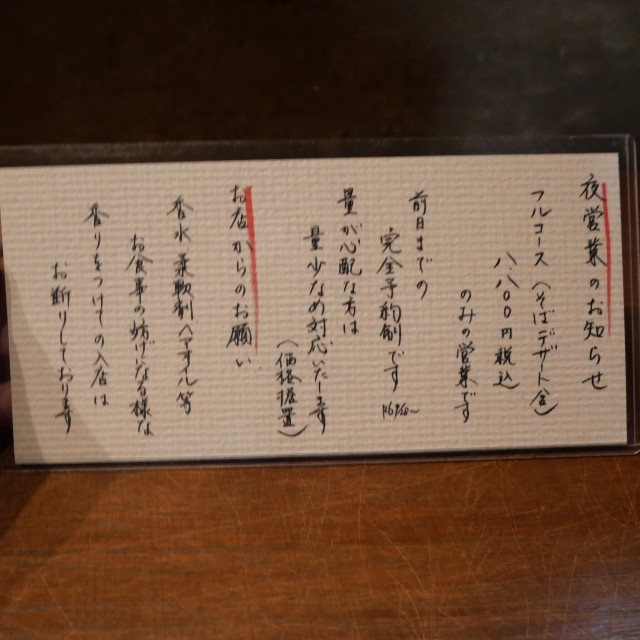 夜営業のお知らせ
フルコース（そばデザート含）
八、八〇〇円税込
のみの営業です
前日までの
完全予約制です
量が心配な方は
量少なめ対応いたします
（価格据置）
お店からのお願い
香水 柔軟剤 ヘアオイル等
お食事の妨げになる様な
香りをつけての入店は
お断りしております